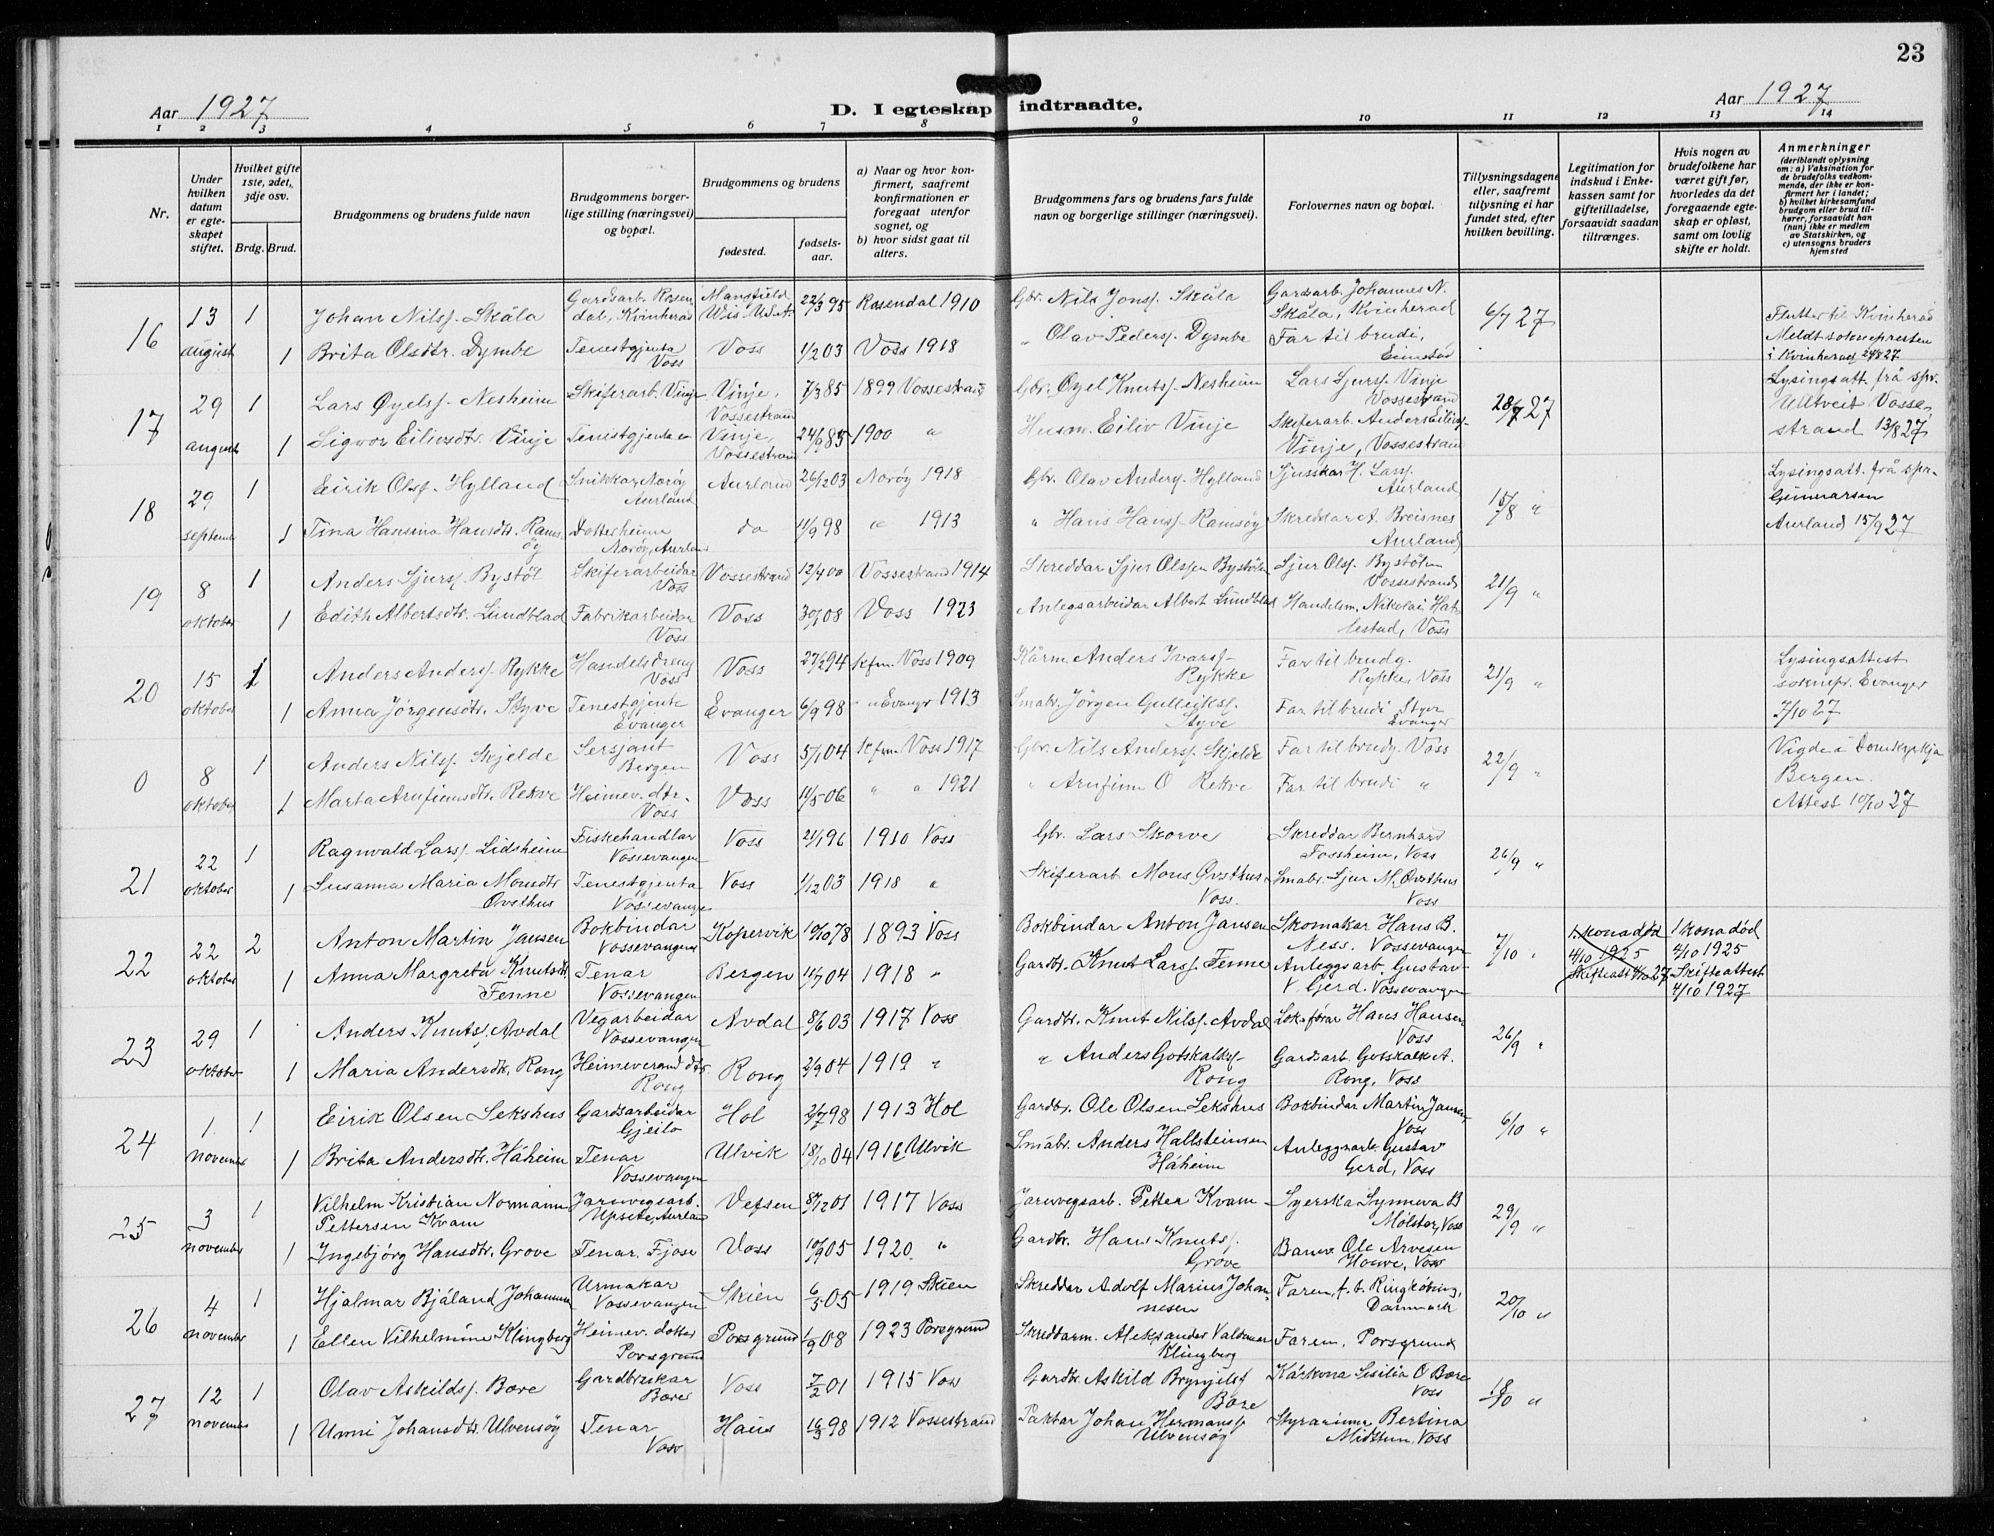 23
Aar 1927
D. I egteskap indtraadte.
Aar 1927
1 2 3 4 5 6 7 8 9 10 11 12 13 14
Nr.
Under hvilken datum er egteskapet stiftet.
Hvilket gifte 1ste, 2det, 3dje osv.
Brdg. Brud.
Brudgommens og brudens fulde navn
Brudgommens borgerlige stilling (næringsvei) og bopæl.
Brudgommens og brudens
fødested.
fødselsaar.
a) Naar og hvor konfirmert, saafremt konfirmationen er foregaat utenfor sognet, og
b) hvor sidst gaat til alters.
Brudgommens fars og brudens fars fulde navn og borgerlige stillinger (næringsvei).
Forlovernes navn og bopæl.
Tillysningsdagene eller, saafremt tillysning ei har fundet sted, efter hvilken bevilling.
Legitimation for indskud i Enkekassen samt for giftetilladelse, forsaavidt saadan tiltrænges.
Hvis nogen av brudefolkene har været gift før, hvorledes da det foregaaende egteskap er opløst, samt om lovlig skifte er holdt.
Anmerkninger
(deriblandt oplysning om: a) Vaksination for de brudefolks vedkommende, der ikke er konfirmert her i landet; b) hvilket kirkesamfund brudgom eller brud tilhører, forsaavidt han (hun) ikke er medlem av Statskirken, og c) utensogns bruders hjemsted
16 13 august 1 Johan Nilss. Skåla Gardsarb. Rosendal, Kvinherad Mansfield Wis. U.S.A. 22/3 95 Rosendal 1910 Gbr. Nils Jonss. Skåla Gardsarb. Johannes N. Skåla, Kvinherad 6/7 27 Flutter til Kvinherad
1 Brita Olsdtr. Dymbe Tenestgjenta Voss Voss 1/2 03 Voss 1918 " Olav Peders. Dymbe Far til brudi, Meldt soknepresten i Kvinherad 24/8 27
17 29 august 1 Lars Øyels. Nesheim Skiferarb. Vinje Vinje, Vossestrand 7/3 85 1899 Vossestrand Gbr. Øyel Knuts. Nesheim Lars Sjurs. Vinje Vossestrand 28/7 27 Lysingsatt. frå spr. Ulltveit Vossestrand 13/8 27
1 Sigvor Eilivsdtr. Vinje Tenestgjenta " Vinje, Vossestrand 24/9 85 1900 " Husm. Eiliv Vinje Skiferarb. Anders Eilivs. Vinje, Vossestrand
18 29 septemb 1 Eirik Olss. Hylland Snikkar Norøy Aurland Aurland 26/12 03 Norøy 1918 Gbr. Olav Anders. Hylland H. Lars. Aurland 15/8 " Lysingsatt. frå spr. Gunnarsen Aurland 15/9 27
1 Tina Hansina Hansdtr. Ramsøy Dotterheime Norøy, Aurland do 11/9 98 " 1913 " Hans Hanss. Ramsøy Skreddar A. Breisnes Aurland
19 8 oktober 1 Anders Sjurs. Bystøl Skiferarbeidar Voss Vossestrand 12/4 00 Vossestrand 1914 Skreddar Sjur Olssen Bystølen Sjur Olss. Bystølen Vossestrand 21/9 "
1 Edith Albertsdtr. Lundblad Fabrikarbeidar Voss Voss 30/1 08 Voss 1923 Anlegsarbeidar Albert Lundblad Handelsm. Nikolai Hatlestad, Voss
20 15 oktober 1 Anders Anders. Rykke Handelsdreng Voss Voss 27/2 94 Kfm. Voss 1909 Kårm. Anders Ivars. Rykke Far til brudg. Rykke, Voss 21/9 " Lysingsattest soknepr. Evanger 7/10 27
1 Anna Jørgensdtr. Styve Tenestgjente Evanger Evanger 6/9 98 " Evangr 1913 Småbr. Jörgen Gulleiks. Styve Far til brudi Styve Evanger
0 8 oktober 1 Anders Nils. Skjelde Sersjant Bergen Voss 5/1 04 Kfm. Voss 1917 Gbr. Nils Anders. Skjelde Far til brudg. Voss 22/9 " Vigde i Domkyrkja Bergen. Attest 10/10 27
1 Marta Arnfinnsdtr. Rekve Heimev. dtr. Voss Voss 11/5 06 " " 1921 " Arnfinn O Rekve Far til brudi "
21 22 oktober 1 Ragnvald Lars. Lidsheim Fiskehandlar Vossevangen Voss 21/1 96 1910 Voss Gbr. Lars Skorve Skreddar Bernhard Fossheim, Voss 26/9 "
1 Susanna Maria Monsdtr Øvsthus Tenestgjenta Vossevangen Voss 1/12 03 1918 " Skiferarb. Mons Øvsthus Voss. Småbr. Sjur M. Øvsthus Voss
22 22 oktober 2 Anton Martin Jansen Bokbindar Vossevangen Kopervik 19/10 78 1893 Voss Bokbindar Anton Jansen Skomakar Hans B. Ness. Vossevangen 7/10 " 1 kona død 4/10 1925 Skifteatt 4/10 27 1 kona død 4/10 1925 Skifteattest 4/10 1927
1 Anna Margreta Knutsdtr Fenne Tenar Vossevangen Bergen 11/7 04 1918 " Gardbr. Knut Lars. Fenne Anleggsarb. Gustav V. Gjerd. Vossevangen
23 29 oktober 1 Anders Knuts. Avdal Vegarbeidar Vossevangen Avdal 8/6 03 1917 Voss Gardbr. Knut Nils. Avdal Lok. førar Hans Hansen Voss 26/9 "
1 Maria Andersdtr. Rong Heimeverand dtr Rong Rong 2/9 04 1919 " " Anders Gotskalks. Rong Gardsarb. Gotskalk A. Rong, Voss
24 1 november 1 Eirik Olsen Sekshus Gardsarbeidar Gjeilo Hol 2/7 98 1913 Hol Gardbr. Ole Olsen Sekshus Bokbindar Martin Jansen, Voss 6/10 "
1 Brita Andersdtr. Håheim Tenar Vossevangen Ulvik 18/10 04 1916 Ulvik Småbr. Anders Hallsteinsen Håheim Anleggsarb. Gustav Gerd, Voss
25 3 november 1 Vilhelm Kristian Normann Pettersen Kvam Jarnvegsarb. Upsete, Aurland Vefsen 8/12 01 1917 Voss Jarnvegsarb. Petter Kvam Syerska Synneva B Mølster, Voss 29/9 "
1 Ingebjörg Hansdtr. Grove Tenar. Fjose Voss 10/9 05 1920 " Gardbr. Hans Knuts. Grove Ole Arvesen Houve, Voss
26 4 november 1 Hjalmar Bjåland Johannessen Urmakar Vossevangen Skien 6/5 05 1919 Skien Skreddar Adolf Marius Johannesen Faren, f. t. Ringkøbing, Danmark 20/10 "
1 Ellen Vilhelmine Klingberg Heimev. dotter Porsgrund Porsgrund 1/9 08 1923 Porsgrund Skreddarm. Aleksander Valdemar Klingberg Faren, Porsgrund
27 12 november 1 Olav Askilds. Børe Gardbrukar Børe Voss 7/2 01 1915 Voss Gardbr Askild Brynjulfs Børe Kårkona Sisilia O Børe Voss 18/10 "
1 Unni Johansdtr. Ulvensøy Tenar Voss Haus 16/3 98 1912 Vossestrand Paktar Johan Hermanss Ulvensøy Styrarinne Bertina Midttun, Voss